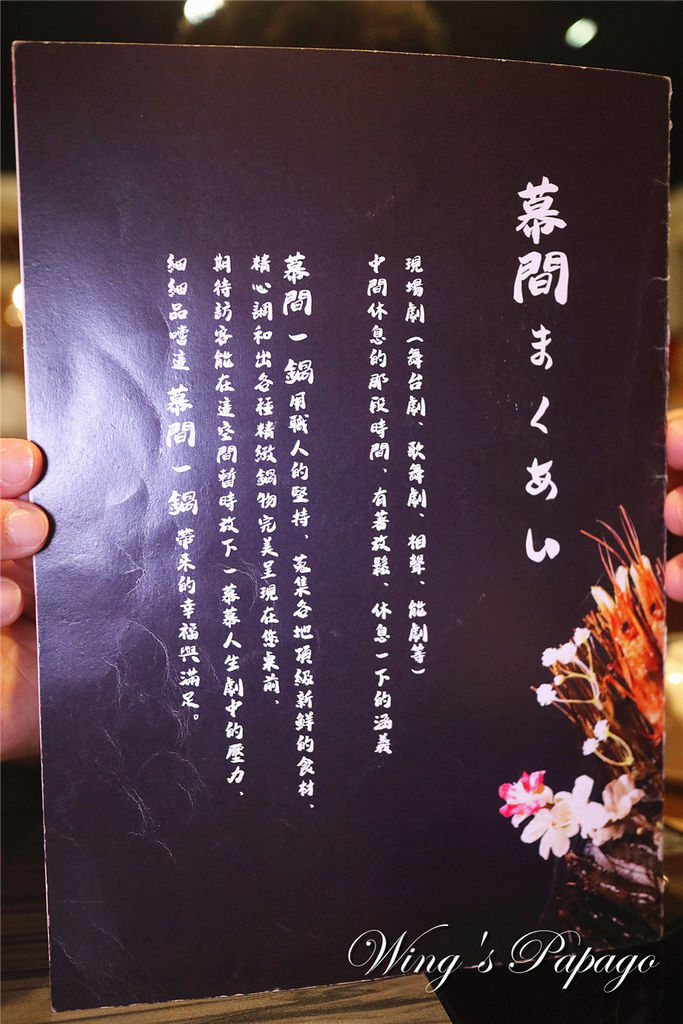 幕間まくあい
現場劇（舞台劇、歌舞劇、相聲、能劇等）
中間休息的那段時間，有著放鬆、休息一下的涵義
幕間一鍋用職人的堅持、蒐集各地頂級新鮮的食材、
精心調和出各種精緻鍋物完美呈現在您桌前，
期待訪客能在這空間暫時放下一幕幕人生劇中的壓力、
細細品嚐這 幕間一鍋 帶來的幸福與滿足。
Wing's Papago